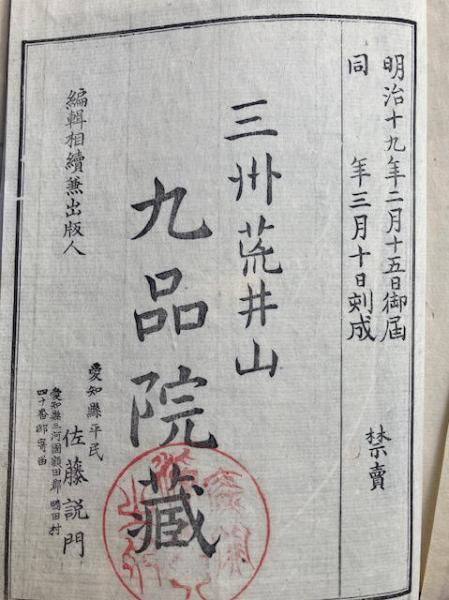 明治十九年二月十五日御届
同 年三月十日刻成
禁賣
三州荒井山
九品院藏
編輯相續兼出版人
愛知縣平民
佐藤説門
愛知縣三河國額田郡鴨田村
四十番邸寄留